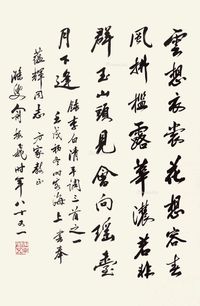 雲想衣裳花想容春
風拂檻露華濃若非
群玉山頭見會向瑤臺
月下逢
錄李白清平調三首之一
壬戌初冬海上書奉
蘊輝同志 方家教正
俞振飛時年八十又一